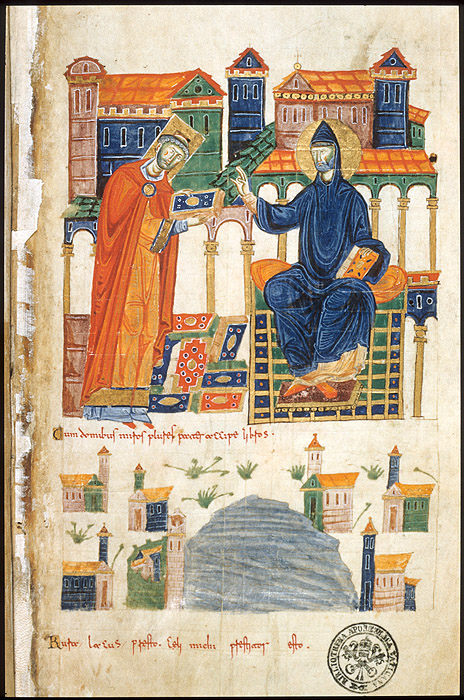 Cum domibus miros plures pater accipe libros.
Rura lacus presto. celi michi prestitor esto.
BIBLIOTHECA APOSTOLICA VATICANA